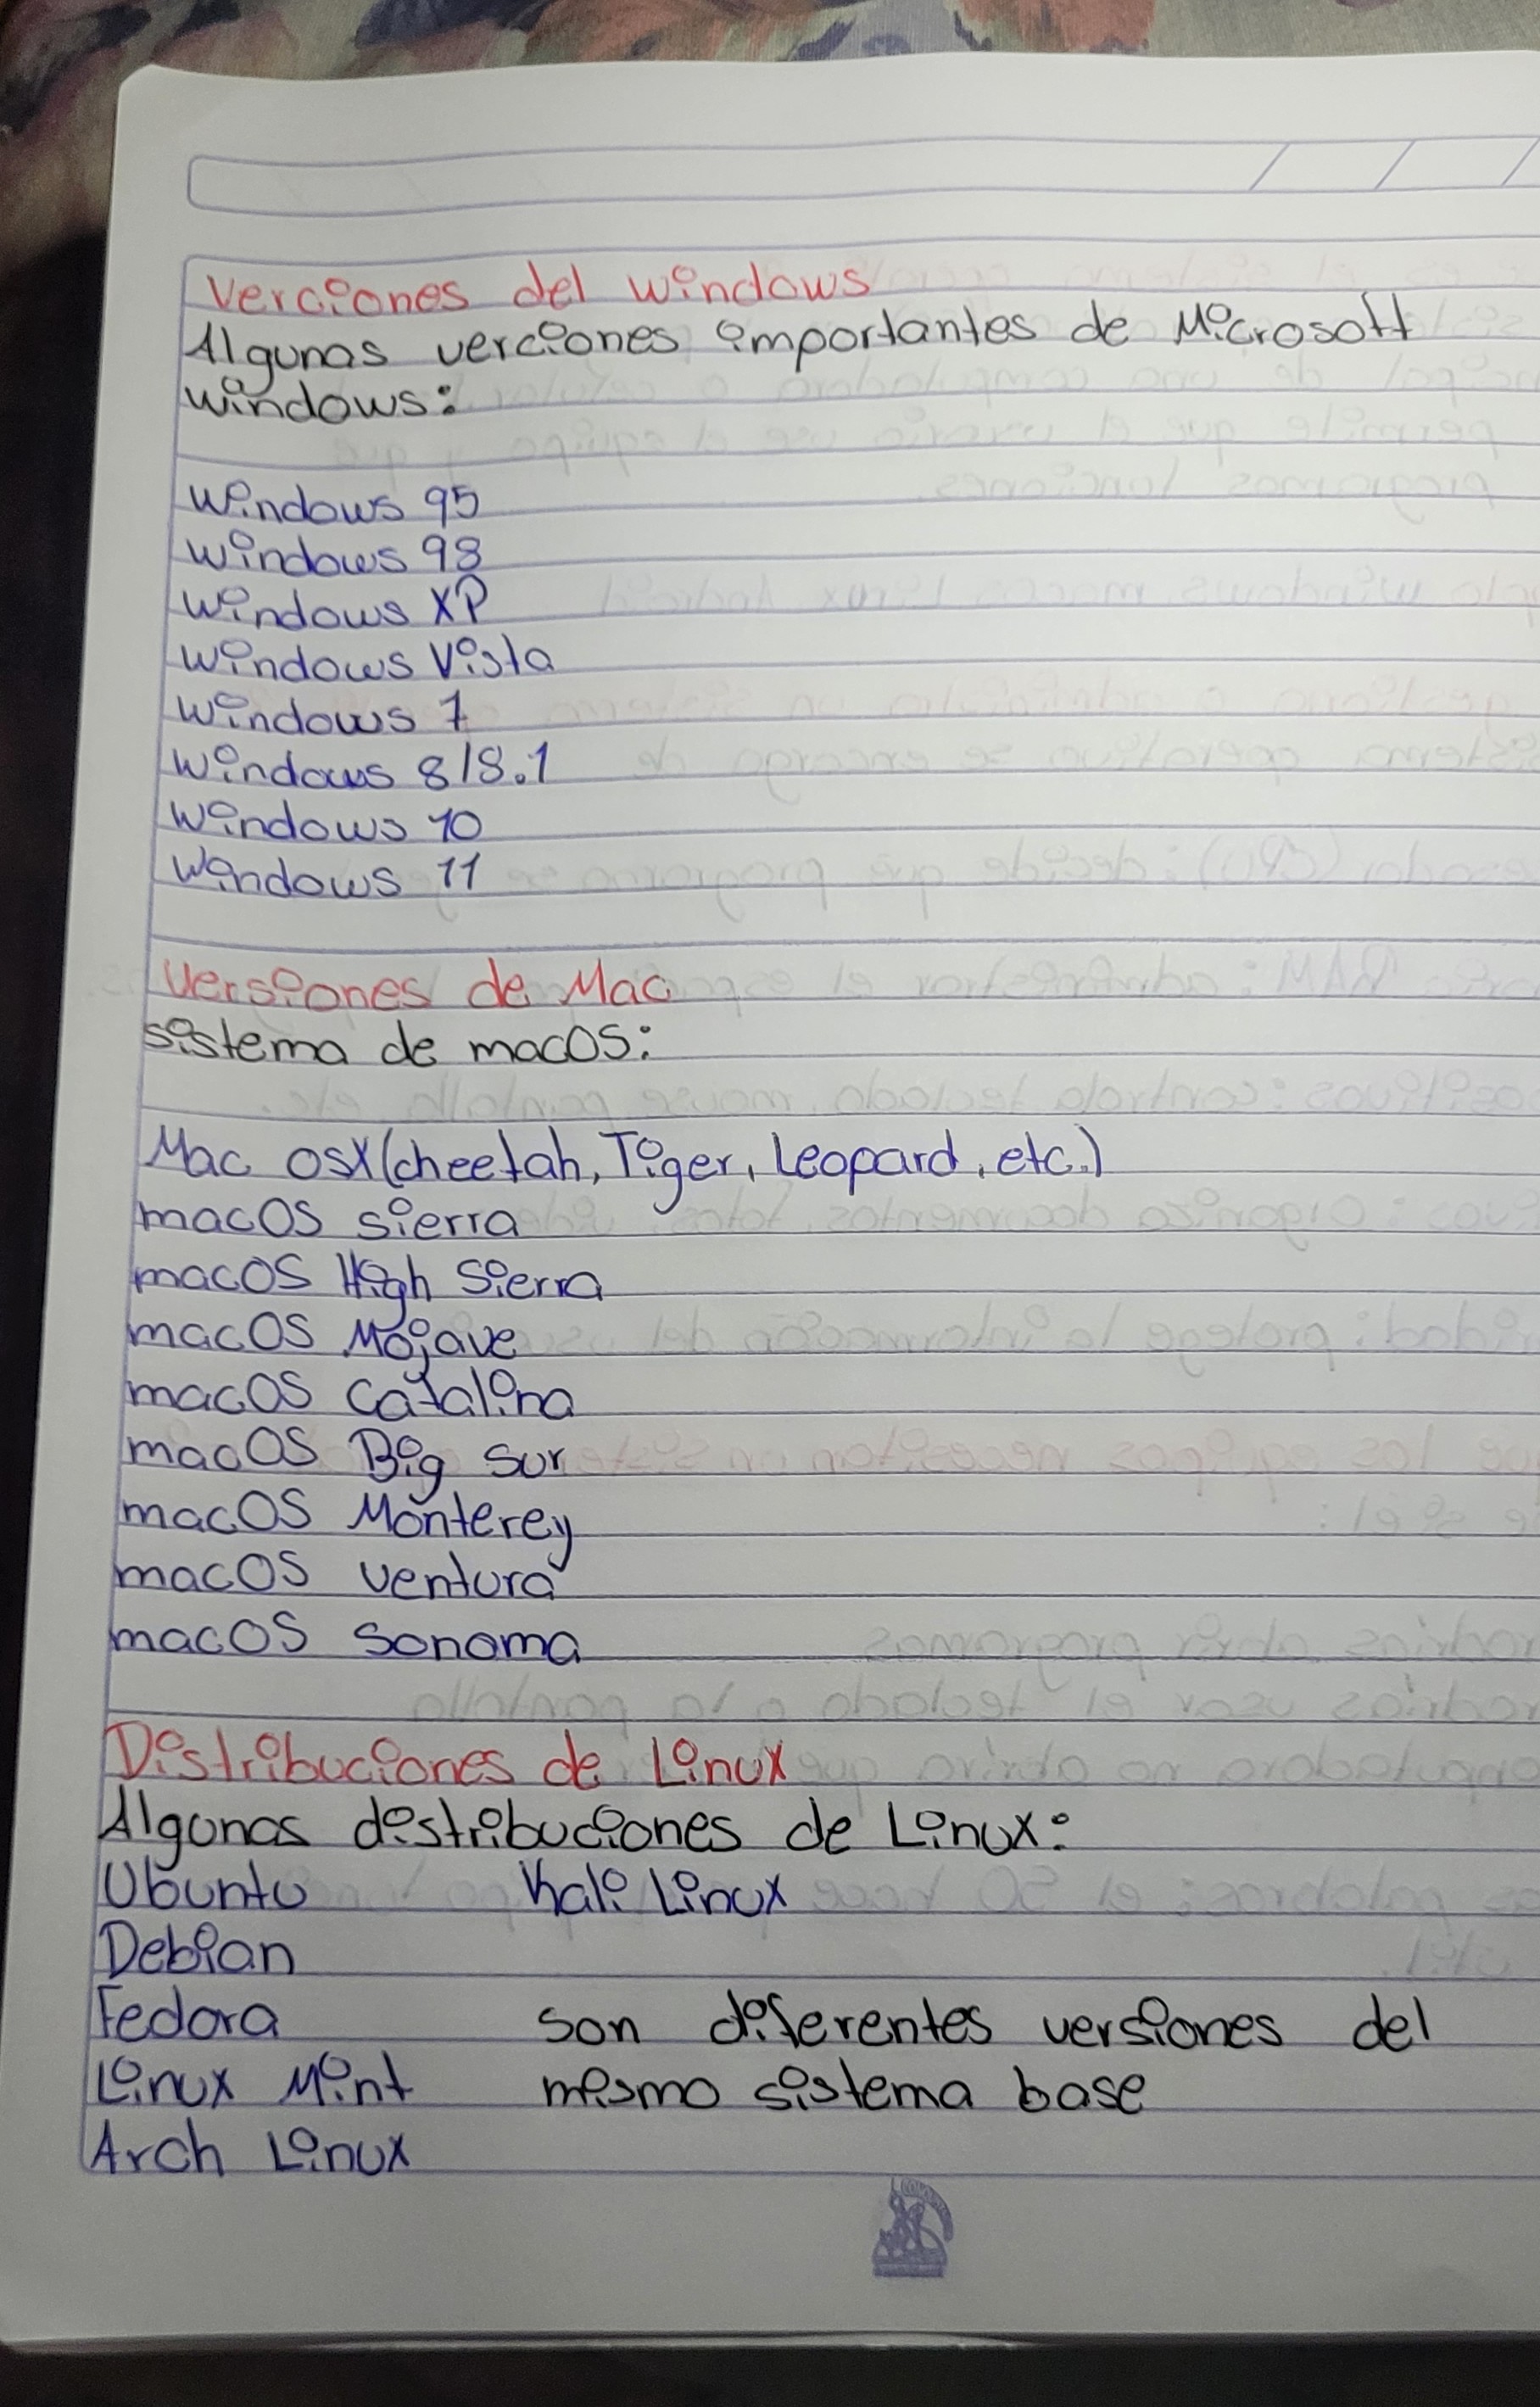 Verciones del windows
Algunas verciones importantes de Microsoft
windows:
Windows 95
windows 98
windows XP
windows Vista
windows 7
windows 8/8.1
windows 10
Windows 11
Versiones de Mac
sistema de macOS:
Mac osx (cheetah, Tiger, Leopard, etc.)
macOS sierra
macOS High Sierra
macOS Mojave
macOS Catalina
macOS Big Sur
macOS Monterey
macOS ventura
macOS Sonoma
Distribuciones de Linux
Algunas distribuciones de Linux:
Ubuntu Kali Linux
Debian
Fedora son diferentes versiones del
Linux Mint mismo sistema base
Arch Linux